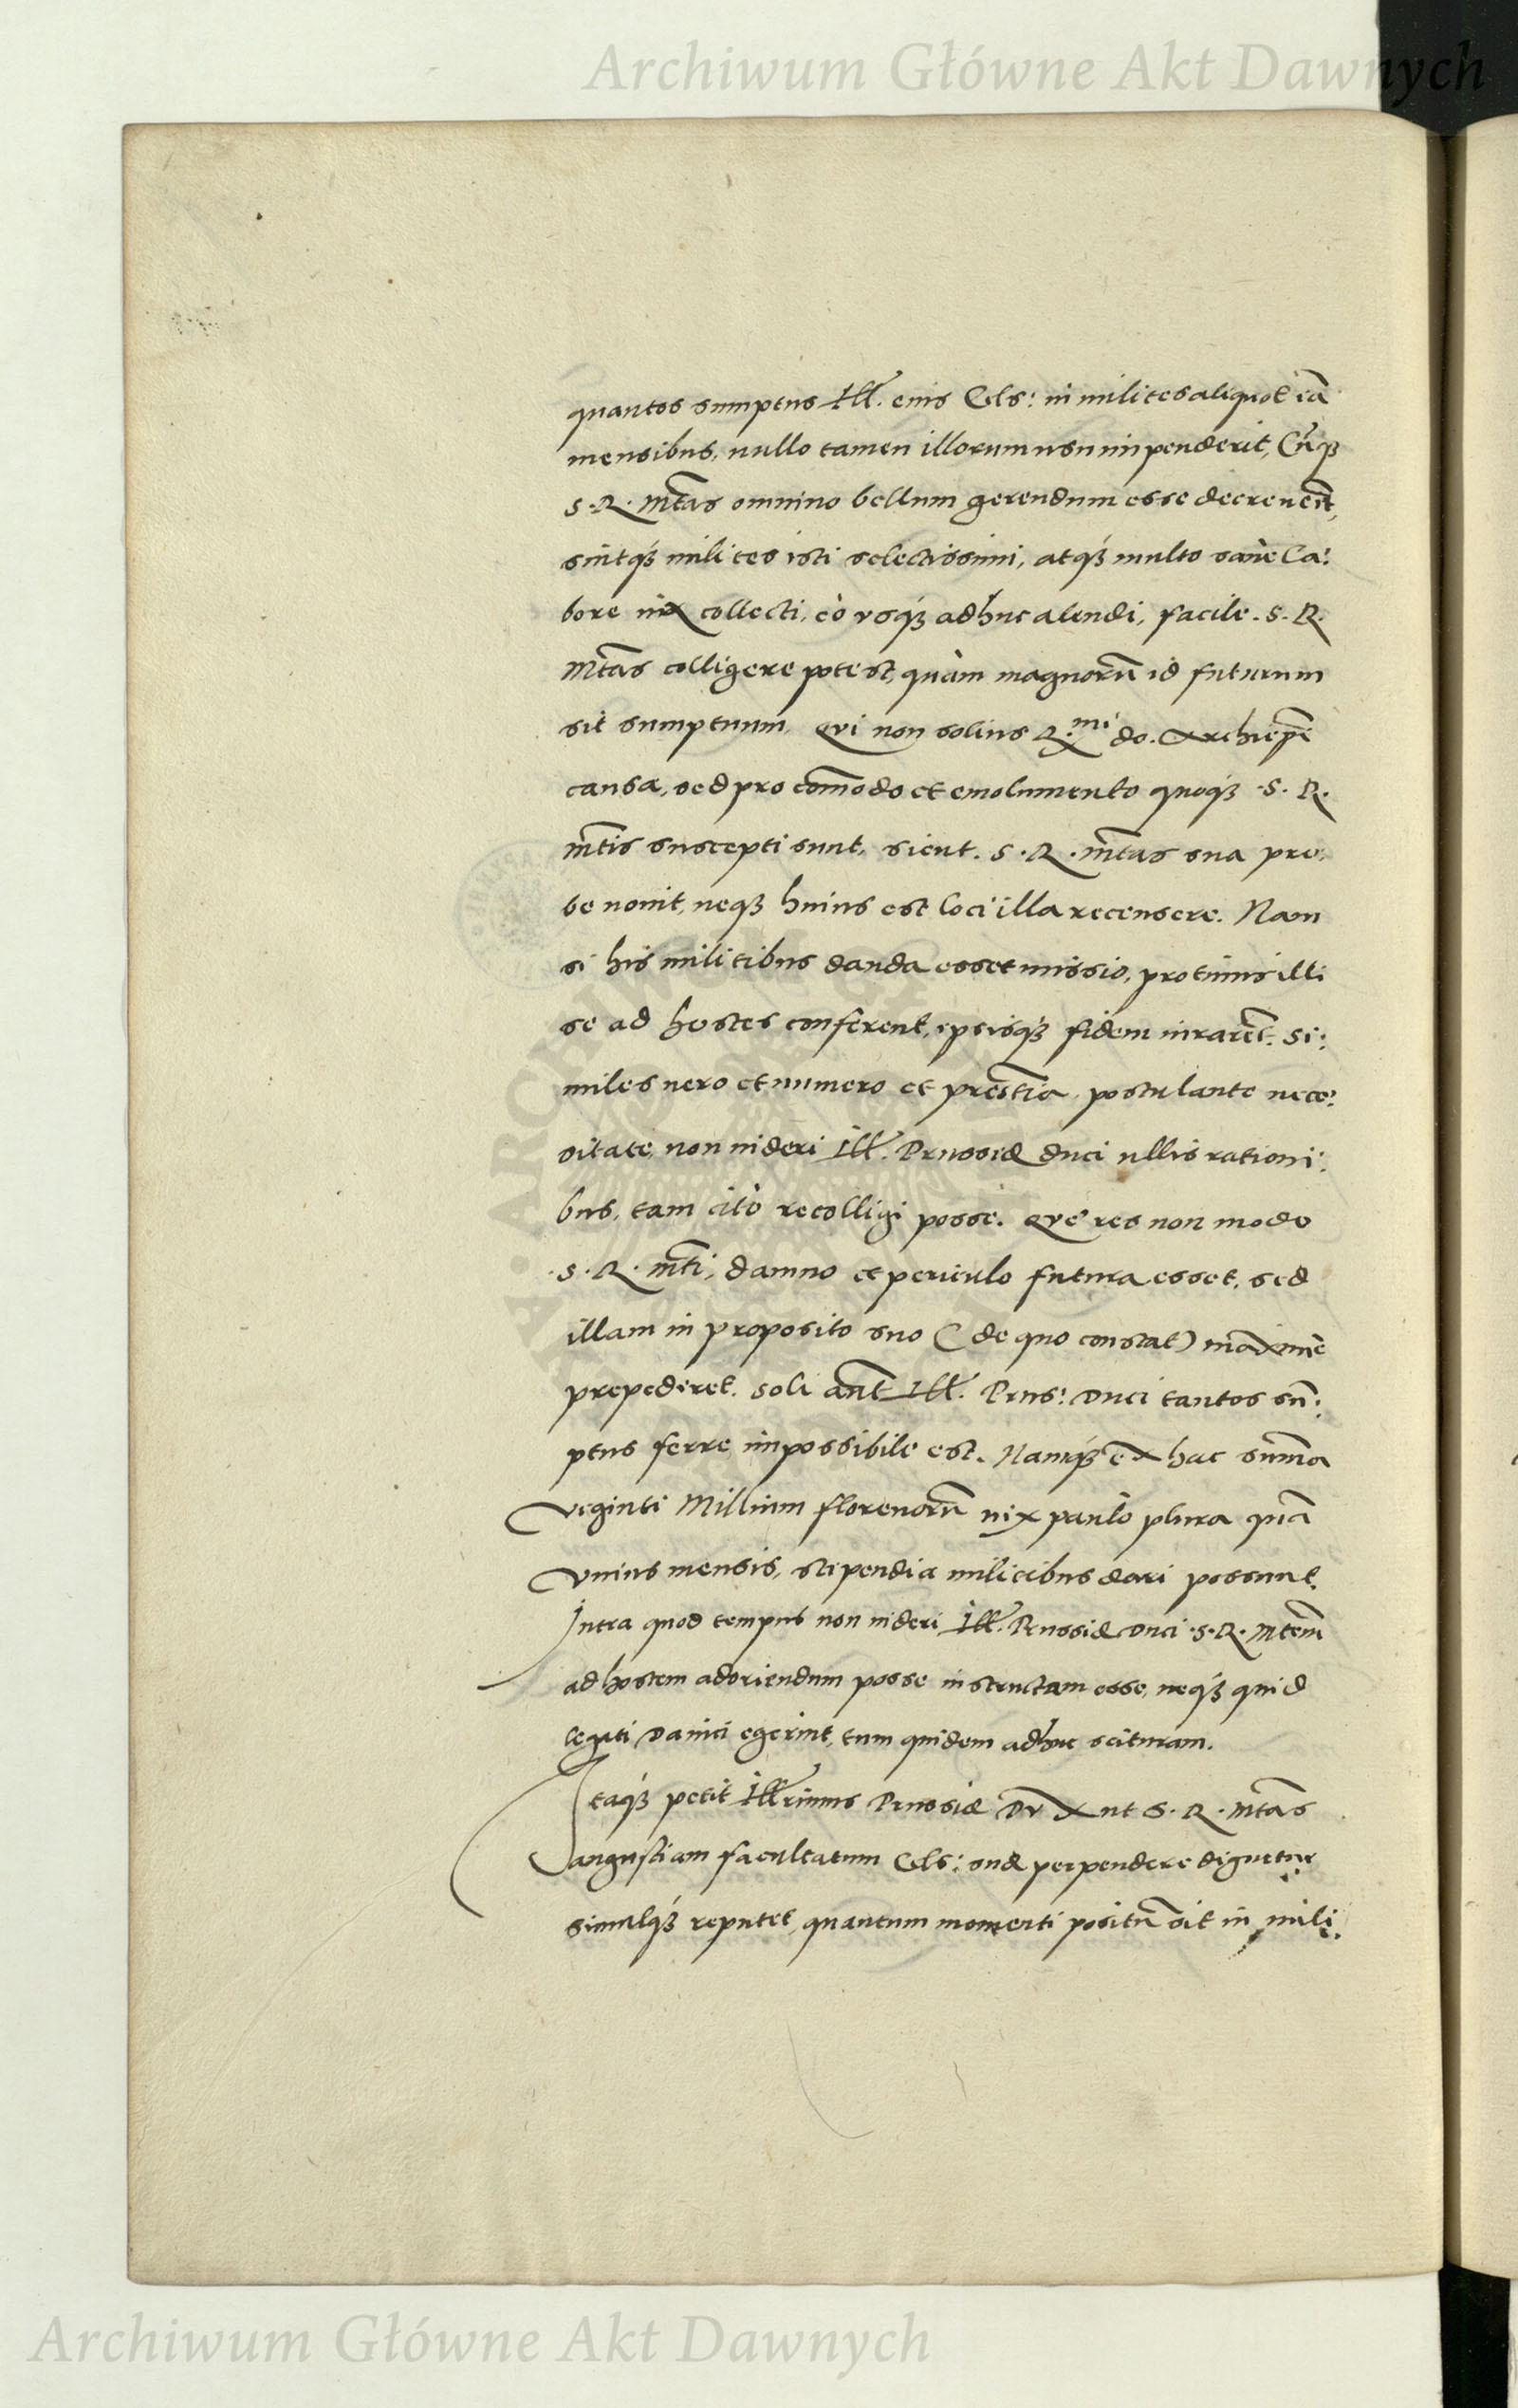 Archiwum Główne Akt Dawnych
quantos sumptus Ill. eius Cels: in milites aliquot iã
mensibus, nullo tamen illorum usu impenderit, Cũq́
S. R. Mtas omnino bellum gerendum esse decreuerit,
sintq́ milites isti selectissimi, atq́ multo sane la:
bore uix collecti, eò vsq́ adhuc alendi, facile. S. R.
Mtas colligere potest, quàm magnorũ id futurum
sit sumptuum. Qui non solius R.mi do. Archiepi
causa, sed pro comodo et emolumento quoq́ S. R.
mtis suscepti sunt, sicut. S. R. mtas sua pro:
be nouit, neq́ huius est loci illa recensere. Nam
si his militibus danda esset missio, protinus illi
se ad hostes conferent, ipsisq́ fidem iurarẽt. Si:
miles uero et numero et prestãtia postulante nece:
sitate, non uideri Ill. Prussiæ duci ullis rationi:
bus, tam citò recolligi posse. Que res non modo
S. R. mti, damno et periculo futura esset, sed
illam in proposito suo (de quo constat) maxime
prepediret. Soli aut Ill. Prus: Duci tantos sũ:
ptus ferre, impossibile est. Namq́ ex hac summa
Veginti Millium florenorũ uix paulò plura quã
Vnius mensis, stipendia militibus dari possunt.
Intra quod tempus non uideri Ill. Prussiæ Duci S. R. Mtem
ad hostem adoriendum posse instructam esse, neq́ quid
legati Danici egerint, tum quidem adhuc scituram.
Itaq́ petit Illrimus Prussiæ Dux ut S. R. Mtas
angustiam facultatum Cels: suæ perpendere dignetur
simulq́ reputet, quantum momenti positũ sit in mili:
Archiwum Główne Akt Dawnych